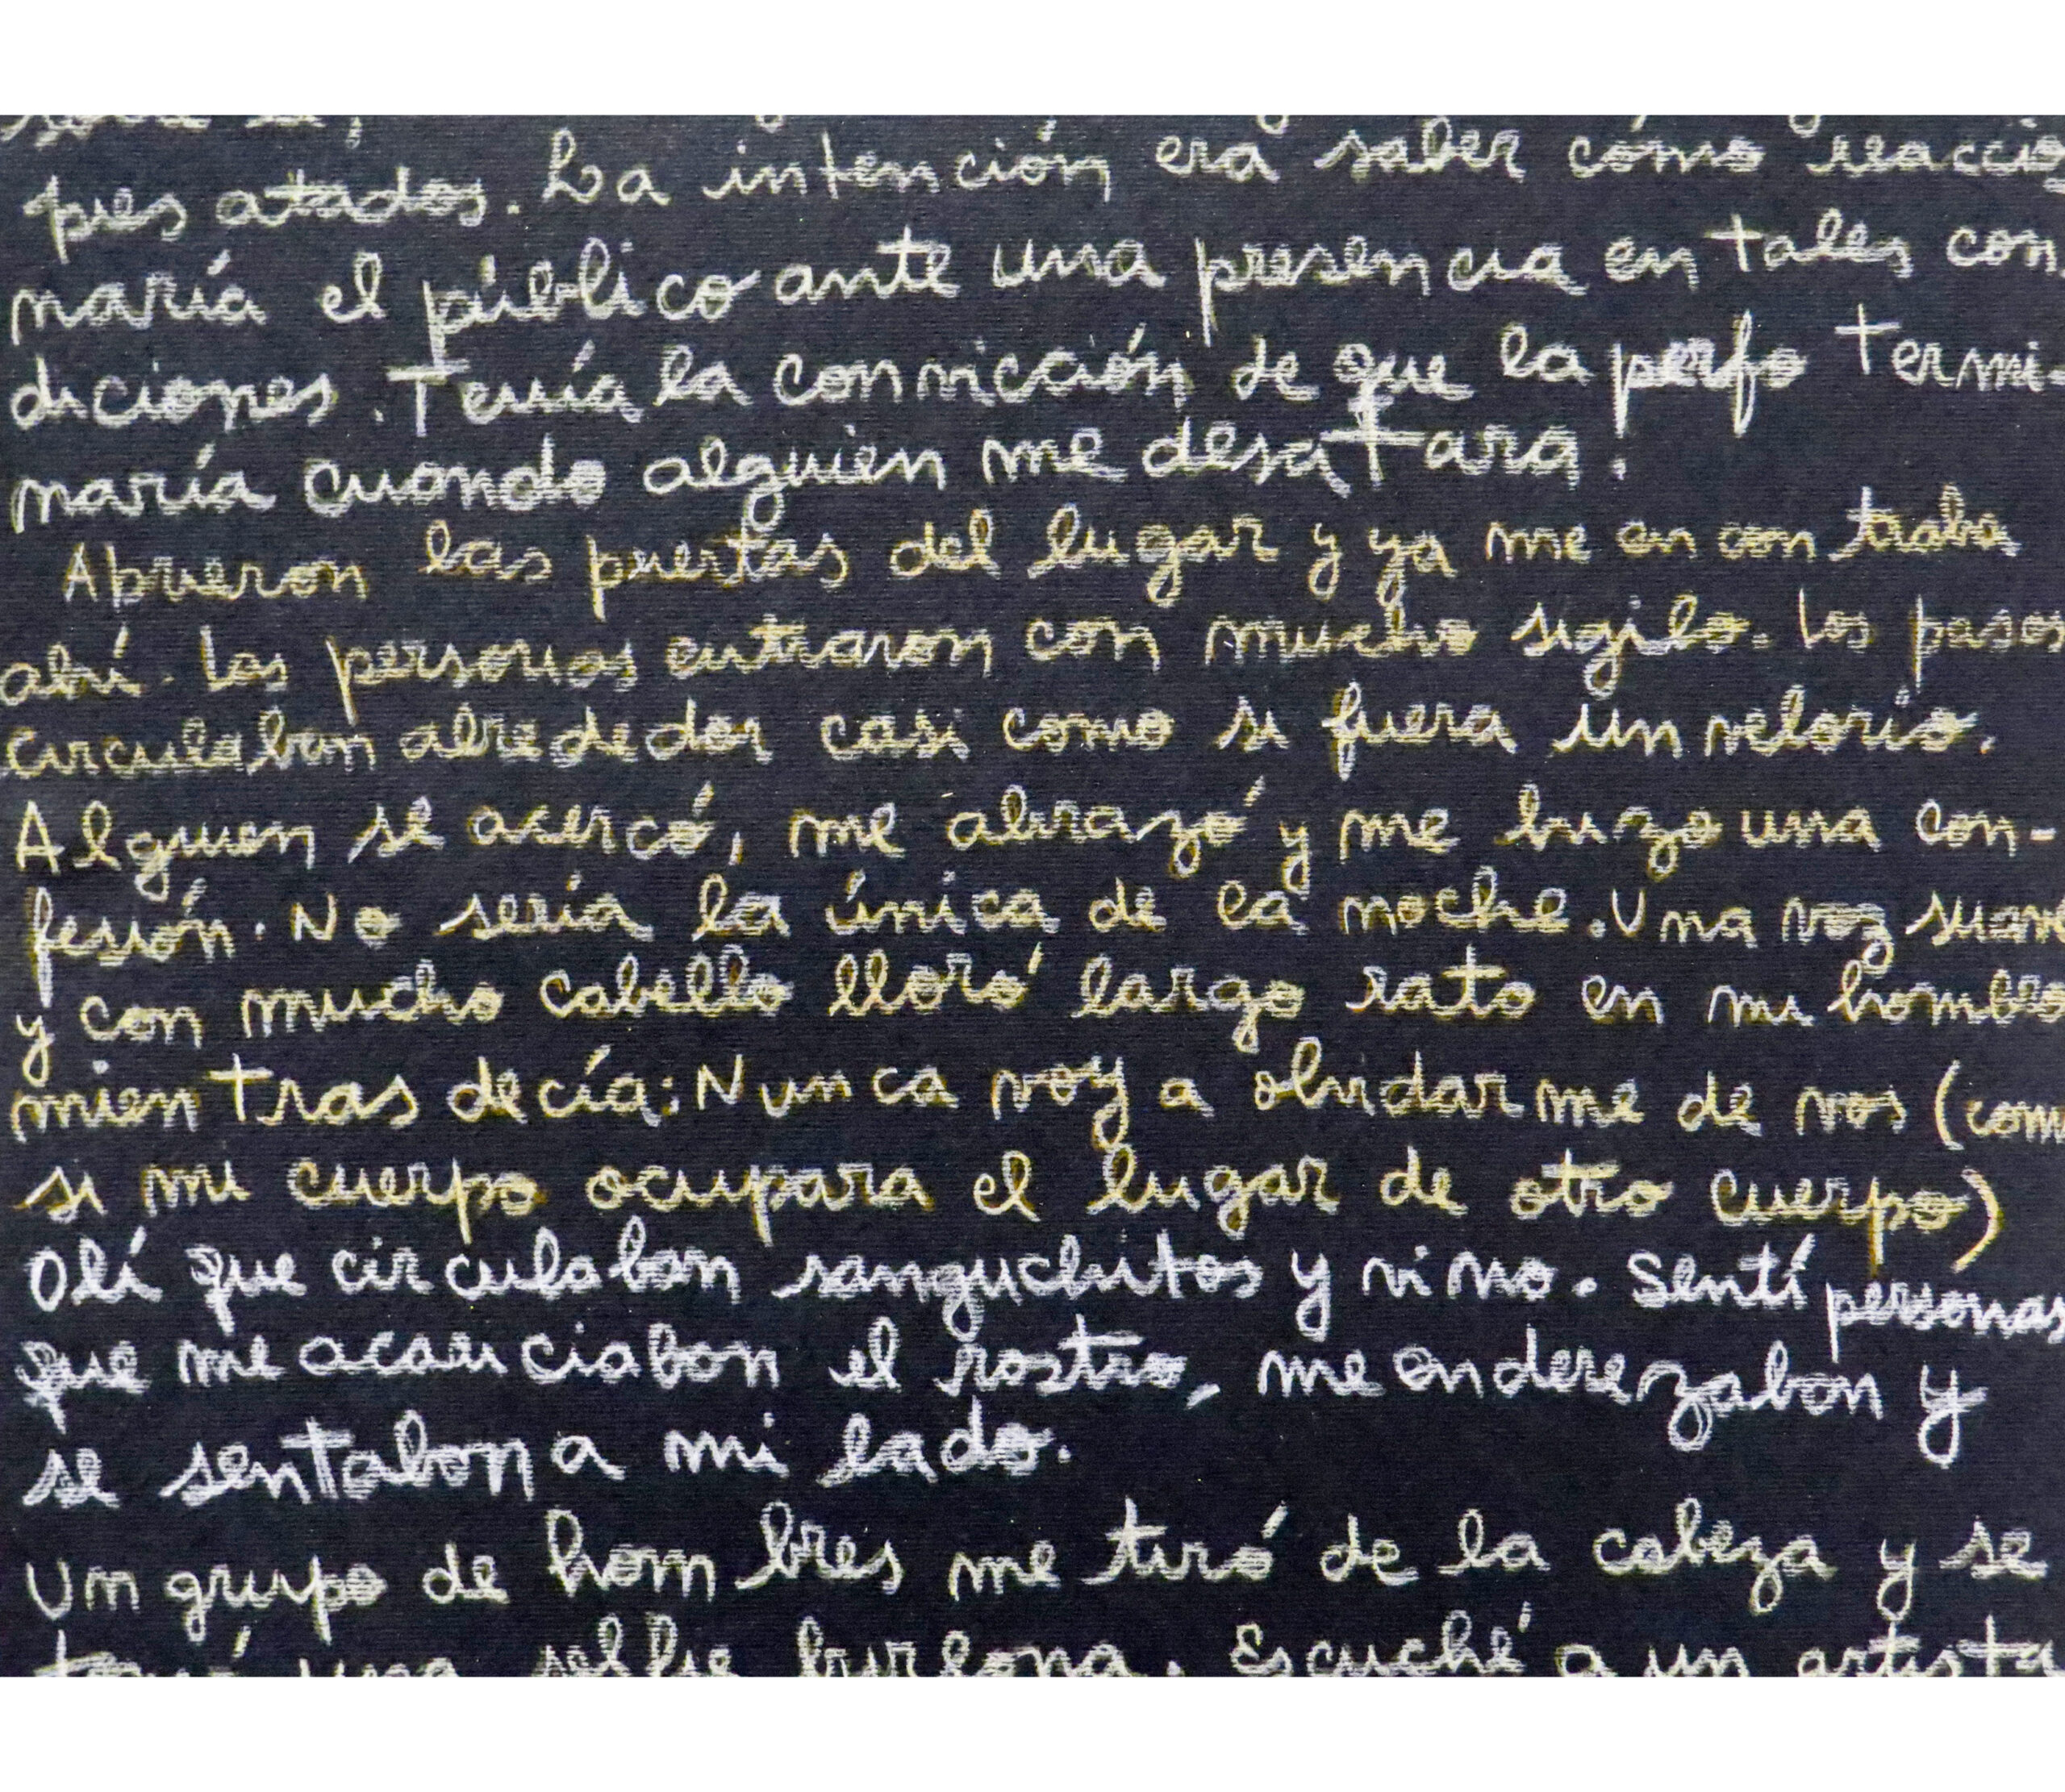 pies atados. La intención era saber cómo reaccio
naría el público ante una presencia en tales con
diciones. Tenía la convicción de que la perfo termi-
naría cuando alguien me desatara.
Abrieron las puertas del lugar y ya me encontraba
ahí. Las personas entraron con mucho sigilo. Los pasos
circulaban alrededor casi como si fuera un velorio.
Alguien se acercó, me abrazó y me hizo una con-
fesión. No sería la única de la noche. Una voz suave
y con mucho cabello lloró largo rato en mi hombro
mientras decía: Nunca voy a olvidarme de vos (com
si mi cuerpo ocupara el lugar de otro cuerpo)
Olí que circulaban sanguchitos y vino. Sentí personas
que me acariciaban el rostro, me enderezaban y
se sentaban a mi lado.
Un grupo de hombres me tiró de la cabeza y se
tomó una selfie burlona. Escuché a un artista